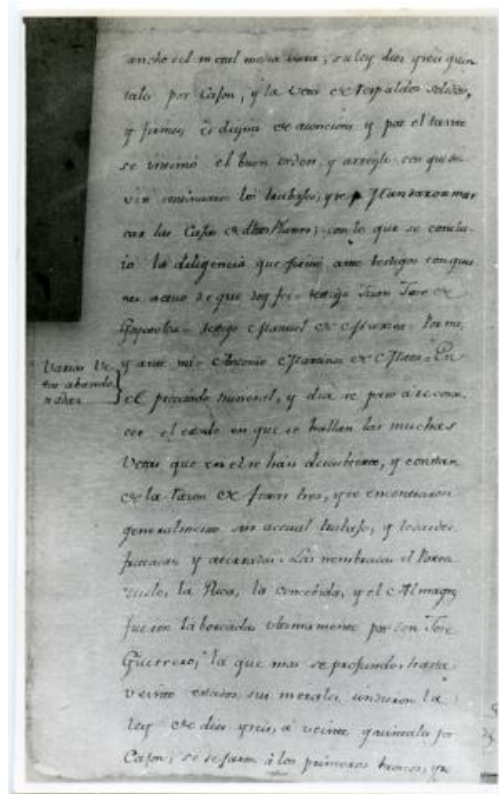 ancho del metal media vara, su ley dies y seis quin
tales por Cajon, y la veta de respaldos solidos,
y firmes es digna de atencion y por el tanto
se intimó el buen orden, y arreglo con que de
ven continuarse los trabajos, y se mandaron mar
car las Cajas de dhas Minas; con lo que se conclu
ió la diligencia que firmé ante testigos con quie
nes actuo de que doy fe = testigo Juan Jose de
testigo Manuel de Por mi,
y ante mi = Antonio Martinez de En
Varias Ve
tas abando
nadas
el precitado mineral, y dia se paso a recono
cer el estado en que se hallan las muchas
Vetas que en el se han descubierto, y constan
de la razon de foxas tres, y se encontraron
generalmente sin actual trabajo, y los
y aterradas. Las nombradas el
la Rica, la concebida, y el Almagre
fueron laboreadas ultimamente por Don Jose
Guerrero, la que mas se profundó hasta
veinte estados, sus metales rindieron la
ley de dies y seis, á veinte quintales por
Cajon, se dejaron á los primeros